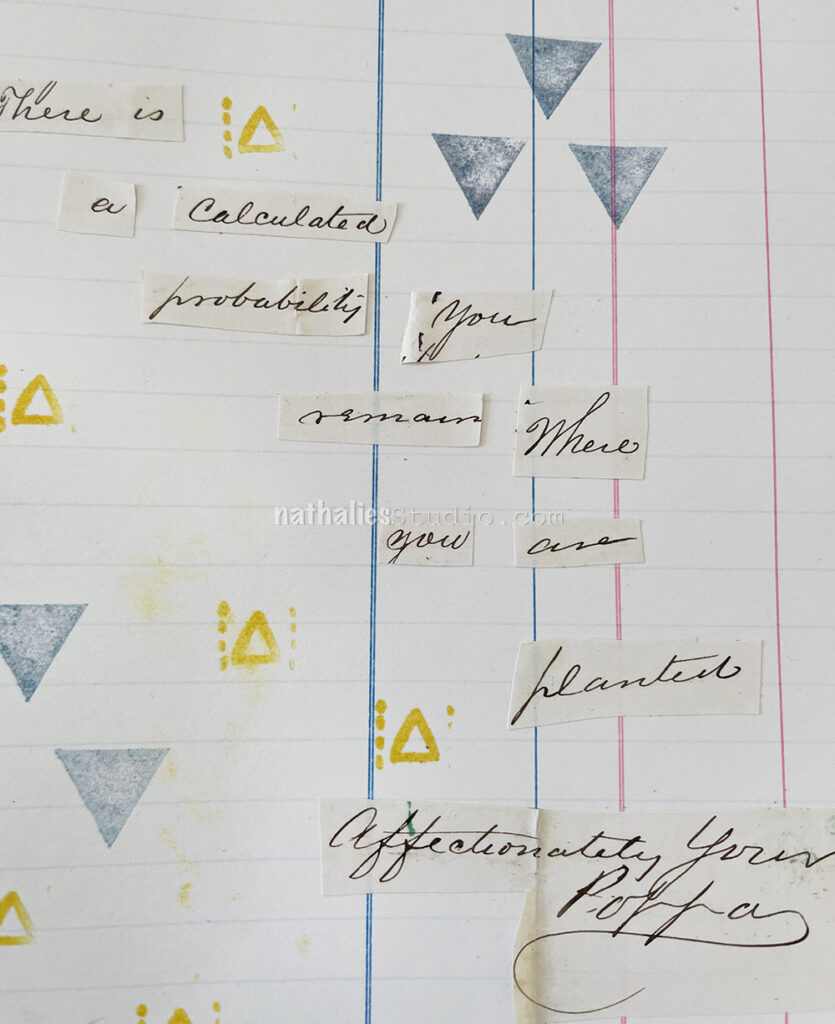 There is
a calculated
probability you
remain Where
nathaliesstudio.com
you are
planted
Affectionately Your
Poppa